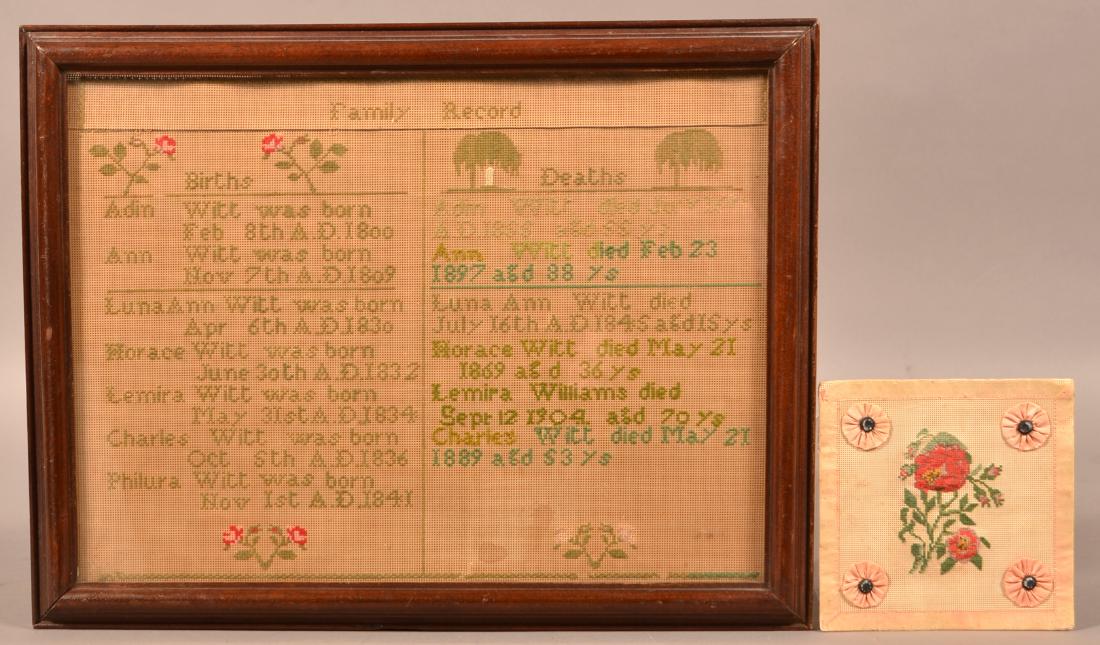 Family Record
Births
Adin Witt was born
Feb 8th A.D.1800
Ann Witt was born
Nov 7th A.D.1809
Luna Ann Witt was born
Apr 6th A.D.1830
Horace Witt was born
June 30th A.D.1832
Lemira Witt was born
May 31st A.D.1834
Charles Witt was born
Oct 5th A.D.1836
Philura Witt was born
Nov 1st A.D.1841
Deaths
Adin Witt died
Ann Witt died Feb 23
1897 agd 88 ys
Luna Ann Witt died
July 16th A.D.1845 agd 15 ys
Horace Witt died May 21
1869 agd 36 ys
Lemira Williams died
Sept 12 1904 agd 70 ys
Charles Witt died May 21
1889 agd 53 ys